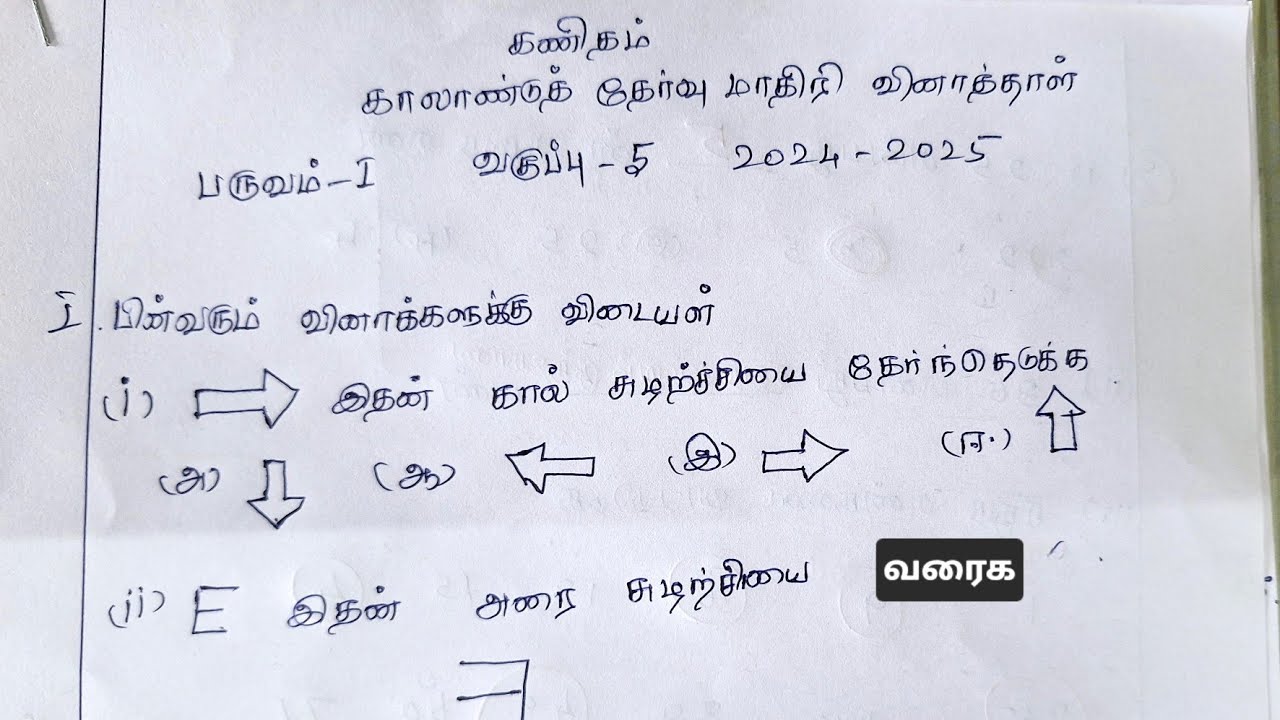 கணிதம்
காலாண்டுத் தேர்வு மாதிரி வினாத்தாள்
பருவம்-I வகுப்பு-5 2024-2025
I. பின்வரும் வினாக்களுக்கு விடையளி
(i) இதன் கால் சுழற்ச்சியை தேர்ந்தெடுக்க
(அ) (ஆ) (இ) (ஈ.)
(ii) E இதன் அரை சுழற்சியை வரைக